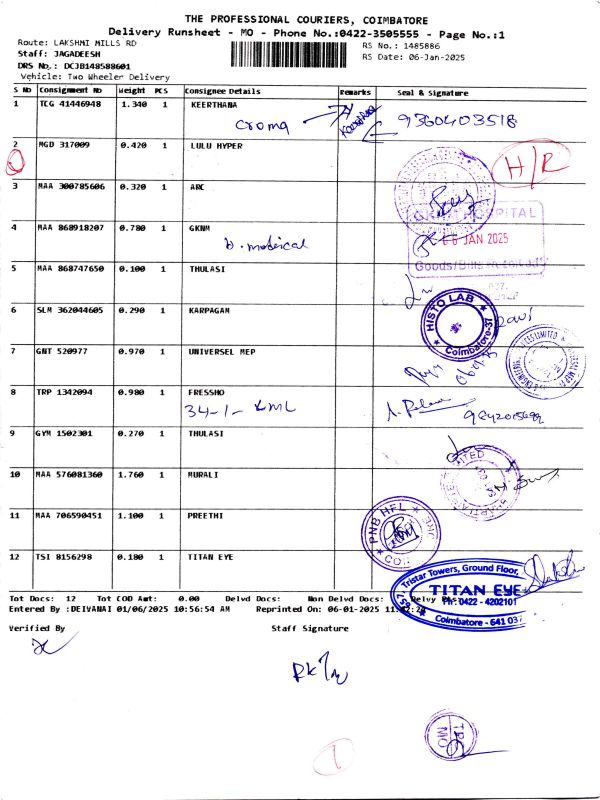 THE PROFESSIONAL COURIERS, COIMBATORE
Delivery Runsheet - MO - Phone No.:0422-3505555 - Page No.:1
Route: LAKSHMI MILLS RD
RS No.: 1485886
Staff: JAGADEESH
RS Date: 06-Jan-2025
DRS No.: DCJB148588601
Vehicle: Two Wheeler Delivery
S No Consignment No Weight PCS Consignee Details Remarks Seal & Signature
1 TCG 41446948 1.340 1 KEERTHANA
croma Keerthana 9360403518
2 MGD 317009 0.420 1 LULU HYPER H/R
3 MAA 300785606 0.320 1 ARC
HOSPITAL
4 MAA 868918207 0.780 1 GKNM
JAN 2025
5 MAA 868747650 0.100 1 THULASI
6 SLM 362044605 0.290 1 KARPAGAM
HISTO LAB
Coimbatore-37
7 GNT 520977 0.970 1 UNIVERSEL MEP
8 TRP 1342094 0.980 1 FRESSHO
34-1-
9 GYM 1502301 0.270 1 THULASI
10 MAA 576081360 1.760 1 MURALI
11 MAA 706590451 1.100 1 PREETHI
PNB HFL
12 TSI 8156298 0.180 1 TITAN EYE
Tristar Towers, Ground Floor,
TITAN EYE
Ph: 0422 - 4202101
Coimbatore - 641 037
Tot Docs: 12 Tot COD Amt: 0.00 Delvd Docs: Non Delvd Docs:
Entered By :DEIVANAI 01/06/2025 10:56:54 AM Reprinted On: 06-01-2025
Verified By Staff Signature